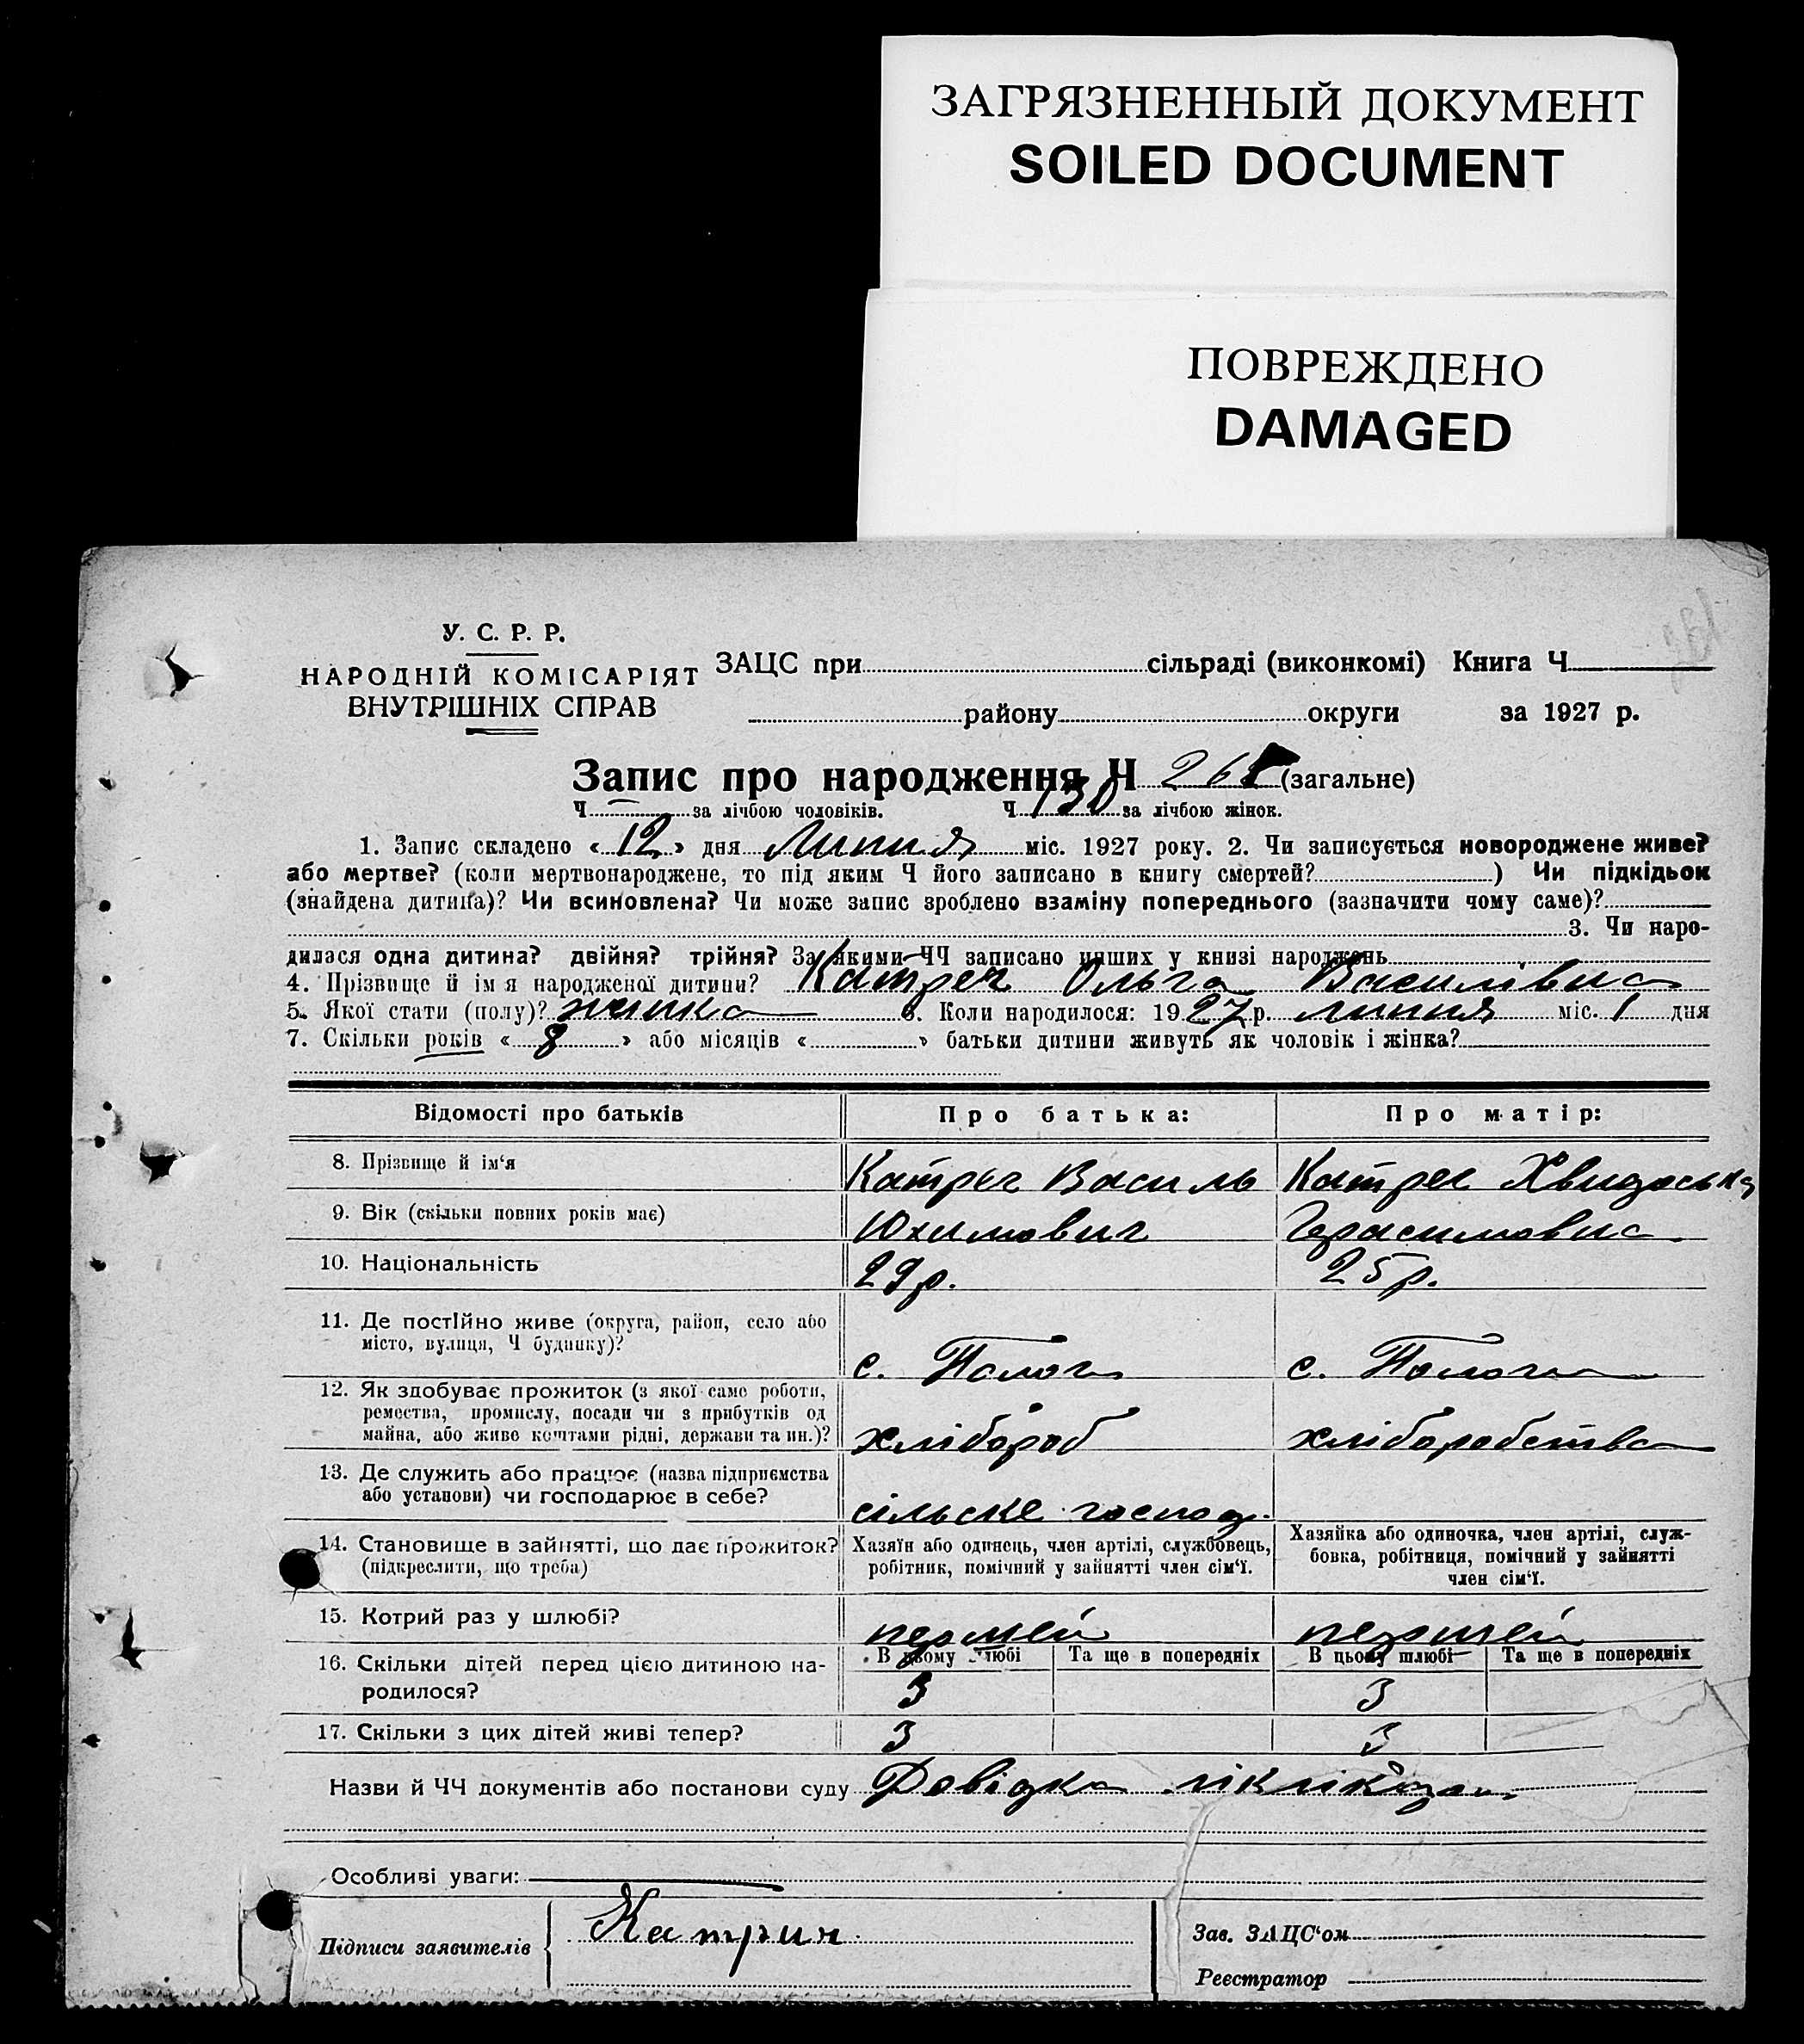 ЗАГРЯЗНЕННЫЙ ДОКУМЕНТ
SOILED DOCUMENT
ПОВРЕЖДЕНО
DAMAGED
У. С. Р. Р.
НАРОДНІЙ КОМІСАРІЯТ
ВНУТРІШНІХ СПРАВ
ЗАЦС при сільраді (виконкомі) Книга Ч
району округи за 1927 р.
Запис про народження Ч (загальне)
Ч — за лічбою чоловіків. Ч 130 за лічбою жінок.
1. Запис складено « 12 » дня Липня міс. 1927 року. 2. Чи записується новороджене живе?
або мертве? (коли мертвонароджене, то під яким Ч його записано в книгу смертей? ) Чи підкідьок
(знайдена дитина)? Чи всиновлена? Чи може запис зроблено взаміну попереднього (зазначити чому саме)?
3. Чи наро-
дилася одна дитина? двійня? трійня? За якими ЧЧ записано инших у книзі народжень
4. Прізвище й ім я народженої дитини? Катреч Ольга Василівна
5. Якої стати (полу)? жинка 6. Коли народилося: 1927 р. липня міс. 1 дня
7. Скільки років « 8 » або місяців « » батьки дитини живуть як чоловік і жінка?
Відомості про батьків Про батька: Про матір:
8. Прізвище й ім‘я Катреч Василь Катреч Хвидоська
9. Вік (скільки повних років має) Юхимович Герасимовна
10. Національність 29 р. 25 р.
11. Де постійно живе (округа, район, село або
місто, вулиця, Ч будинку)? с. Полога с. Полога
12. Як здобуває прожиток (з якої саме роботи,
ремества, промислу, посади чи з прибутків од
майна, або живе коштами рідні, держави та ин.)? хлібороб хліборобства
13. Де служить або працює (назва підприємства
або установи) чи господарює в себе? сільске господ.
14. Становище в зайнятті, що дає прожиток?
(підкреслити, що треба)
Хазяїн або одинець, член артілі, службовець,
робітник, помічний у зайнятті член сім‘ї.
Хазяйка або одиночка, член артілі, служ-
бовка, робітниця, помічний у зайнятті
член сім‘ї.
15. Котрий раз у шлюбі? першей першей
В цьому шлюбі Та ще в попередніх В цьому шлюбі Та ще в попередніх
16. Скільки дітей перед цією дитиною на-
родилося? 3 3
17. Скільки з цих дітей живі тепер? 3 3
Назви й ЧЧ документів або постанови суду Довідка
Особливі уваги:
Підписи заявителів Катрич
Зав. ЗАЦС‘ом
Реєстратор